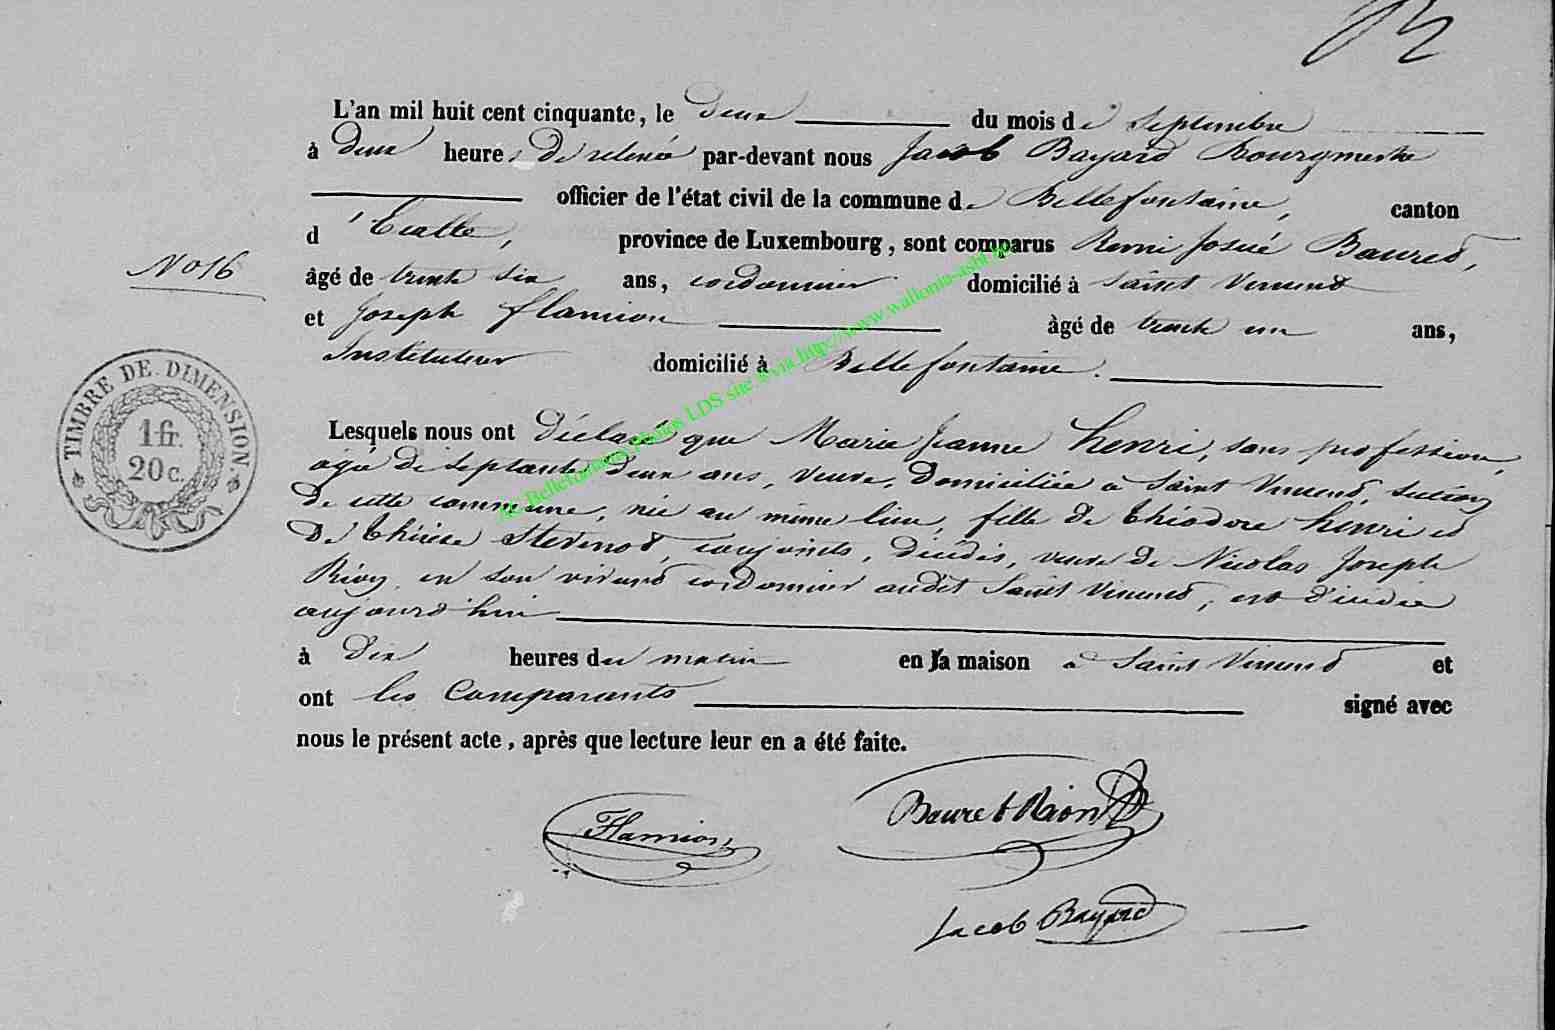 L'an mil huit cent cinquante, le deux du mois de Septembre
à deux heures de relevée par-devant nous Jacob Bayard Bourgmestre
officier de l'état civil de la commune de Bellefontaine, canton
d'Etalle, province de Luxembourg, sont comparus Remi Josué Bauret,
No 16
âgé de trente six ans, cordonnier domicilié à Saint Vincent
et Joseph Flamion âgé de trente un ans,
Instituteur domicilié à Bellefontaine.
TIMBRE DE DIMENSION.
1 fr.
20 c.
Lesquels nous ont déclaré que Marie Jeanne Henri, sans profession,
agée de septante deux ans, veuve, domiciliée à Saint Vincent, section
de cette commune, née au même lieu, fille de Théodore Henri et
de Thérèse Stevenot, conjoints, décédés, veuve de Nicolas Joseph
en son vivant cordonnier audit Saint Vincent, est décédée
aujourd'hui
à dix heures du matin en sa maison à Saint Vincent et
ont les Comparants signé avec
nous le présent acte, après que lecture leur en a été faite.
Flamion
Bauret Rion
Jacob Bayard
LDS site via http://www.wallonia-asbl.be